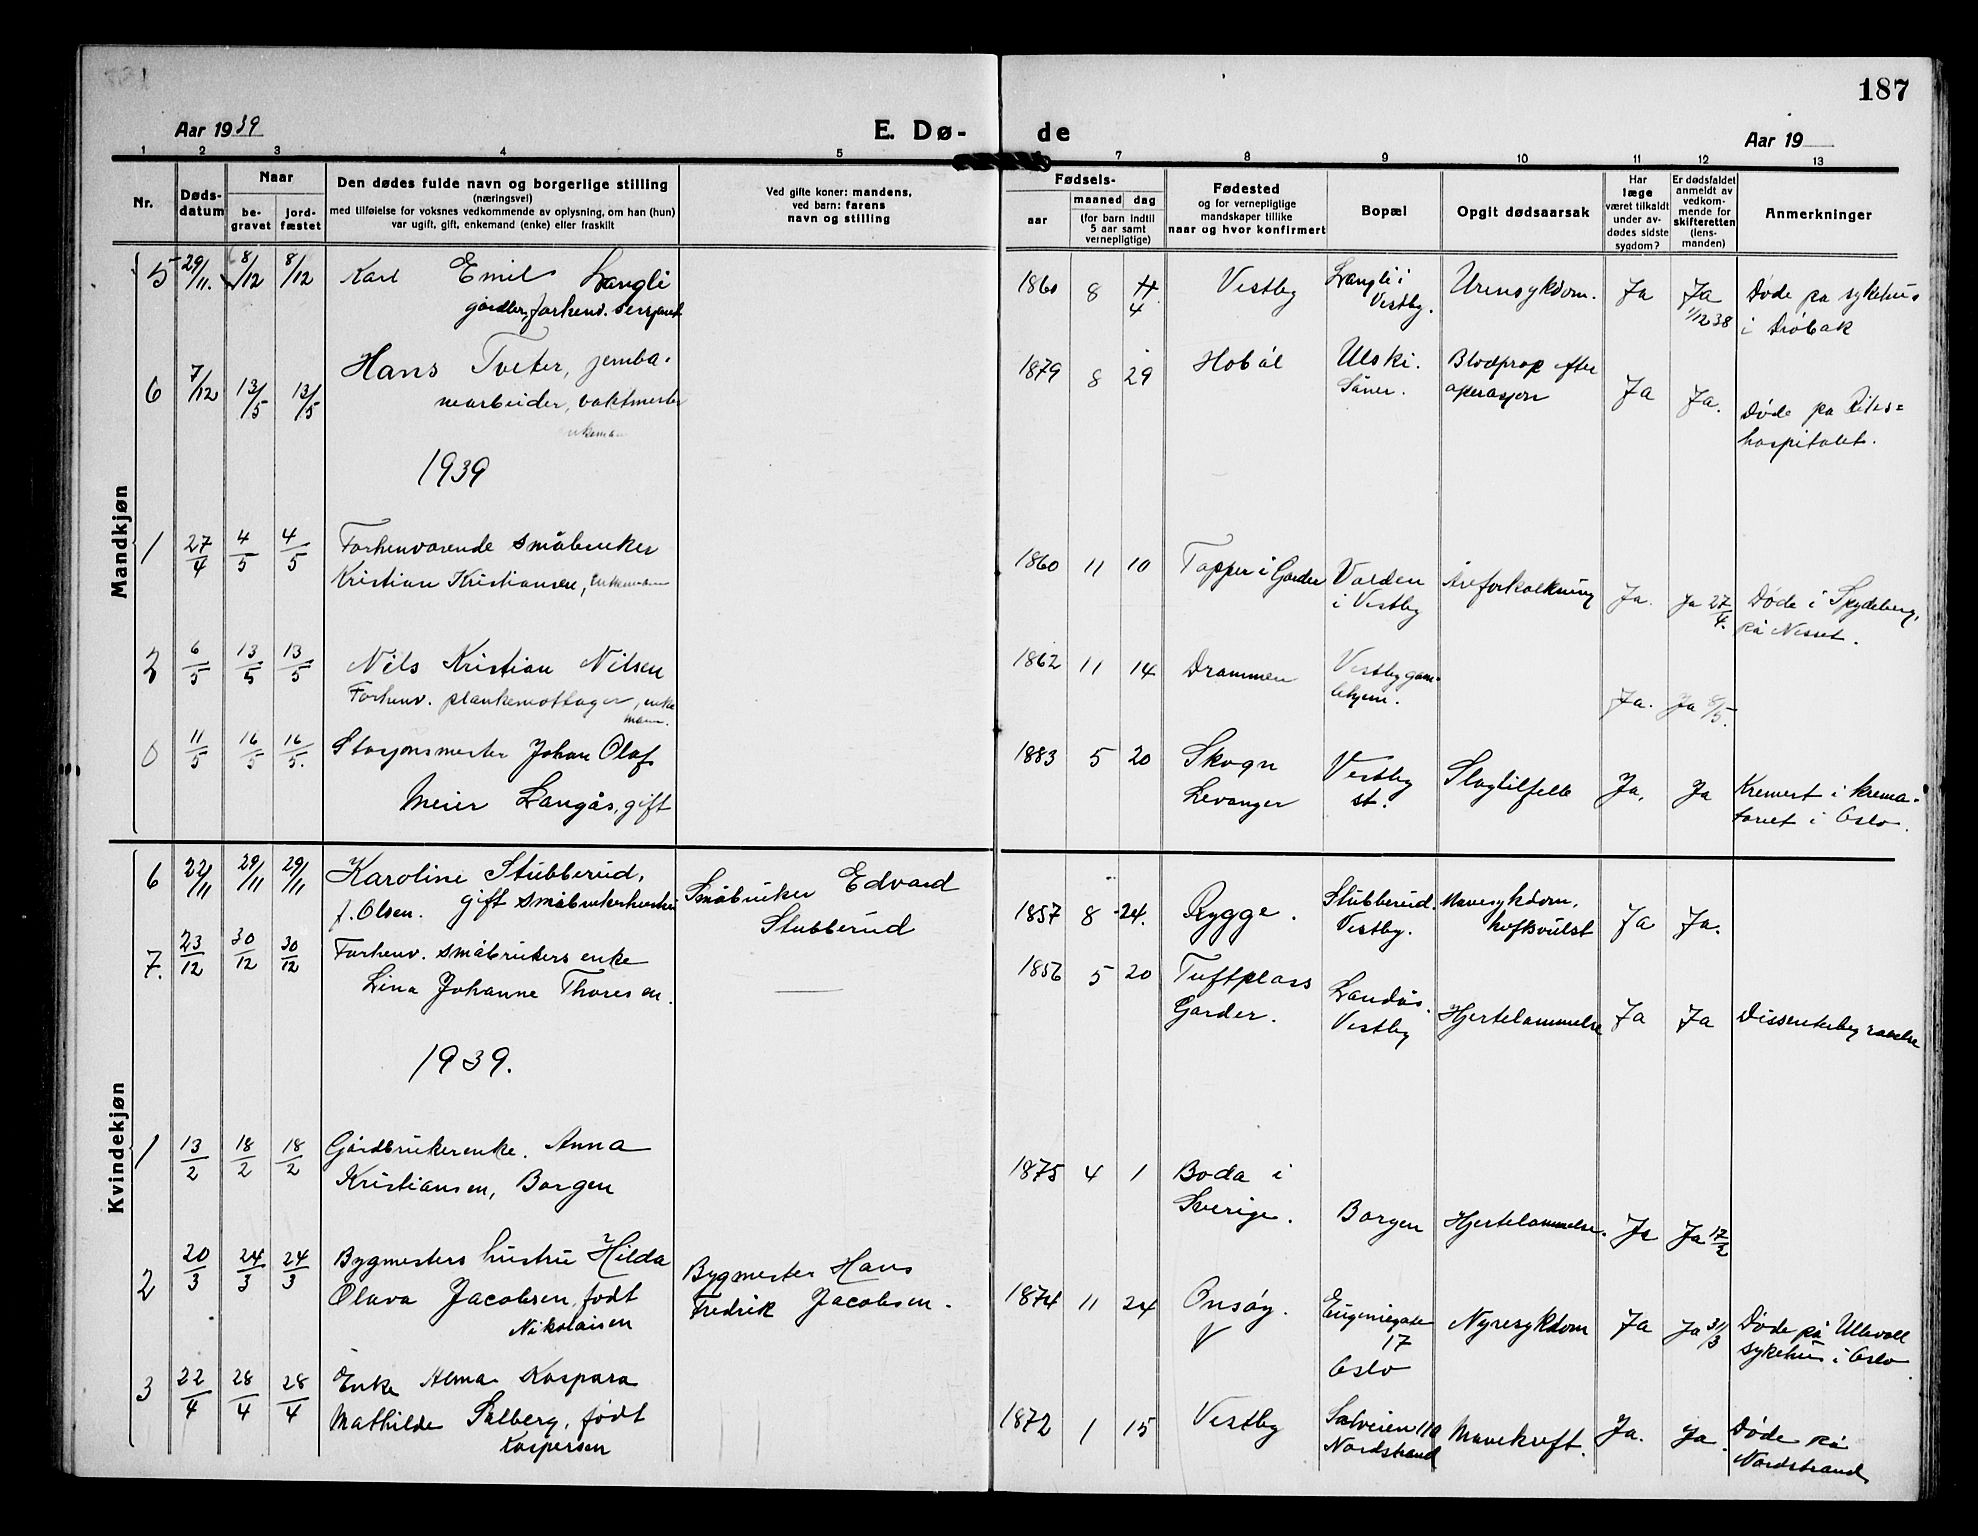 187
Aar 1939
E. Dø-
de
Aar 19
1 2 3 4 5 7 8 9 10 11 12 13
Nr.
Døds-
datum
Naar
be-
gravet
jord-
fæstet
Den dødes fulde navn og borgerlige stilling
(næringsvei)
med tilføielse for voksnes vedkommende av oplysning, om han (hun)
var ugift, gift, enkemand (enke) eller fraskilt
Ved gifte koner: mandens,
ved barn: farens
navn og stilling
Fødsels-
aar
maaned dag
(for barn indtil
5 aar samt
vernepligtige)
Fødested
og for vernepligtige
mandskaper tillike
naar og hvor konfirmert
Bopæl
Opgit dødsaarsak
Har
læge
været tilkaldt
under av-
dødes sidste
sygdom?
Er dødsfaldet
anmeldt av
vedkom-
mende for
skifteretten
(lens-
manden)
Anmerkninger
Mandkjøn
5 29/11. 8/12 8/12 Karl Emil Langli
gårdbr, forhenv. sersjant
1860 8 4 Vestby Langli i
Vestby. Urinsykdom. Ja Ja
1/12 38 Døde på sykehus
i Drøbak
6 7/12 13/5 13/5 Hans Tveter, jernba-
nearbeider, vaktmester
enkeman
1879 8 29 Hobøl Ulski.
Såner. Blodprop efter
operasjon Ja Ja. Døde på Riks=
hospitalet.
1939
1 27/4 4/5 4/5 Forhenværende småbruker
Kristian Kristiansen, enkemann
1860 11 10 Topper i Garder Valden
i Vestby Åreforkalkning Ja. Ja 27/4. Døde i Spydeberg,
på Nesset.
2 6/5 13/5 13/5 Nils Kristian Nilsen
Forhenv. plankemottager, enke
mann.
1862 11 14 Drammen Vestby gam-
lehjem. Ja. Ja 8/5.
0 11/5 16/5 16/5. Stasjonsmester Johan Olaf
Meier Langås, gift
1883 5 20 Skogn
Levanger Vestby
st. Slagtilfelle Ja. Ja Kremert i krema-
toriet i Oslo.
Kvindekjøn
6 22/11 29/11 29/11 Karoline Stubberud,
f. Olsen. gift småbrukerhustru
Småbruker Edvard
Stubberud
1857 8 24. Rygge. Stubberud.
Vestby. Mavesykdom,
hoftsvulst Ja Ja.
7. 23/12 30/12 30/12 Forhenv. småbrukers enke
Lina Johanne Thoresen.
1856 5 20 Tuftplass
Garder. Landås.
Vestby Hjertelammelse Ja Ja Dissenterbegravelse
1939.
1 13/2 18/2 18/2 Gårdbrukerenke. Anna
Kristiansen, Borgen
1875 4 1 Boda i
Sverige. Borgen Hjertelammelse. Ja Ja 17/2
2 20/3 24/3 24/3 Bygmesters hustru Hilda
Olava Jacobsen, født
Nikolaisen
Bygmester Hans
Fredrik Jacobsen.
1874 11 24 Onsøy. Eugeniegate
17
Oslo Nyresykdom Ja Ja 31/3 Døde på Ullevoll
sykehus i Oslo
3 22/4 28/4 28/4 Enke Alma Kaspara
Mathilde Solberg, født
Kaspersen
1872 1 15 Vestby Solveien 110
Nordstrand Mavekreft. Ja. Ja. Døde på
Nordstrand